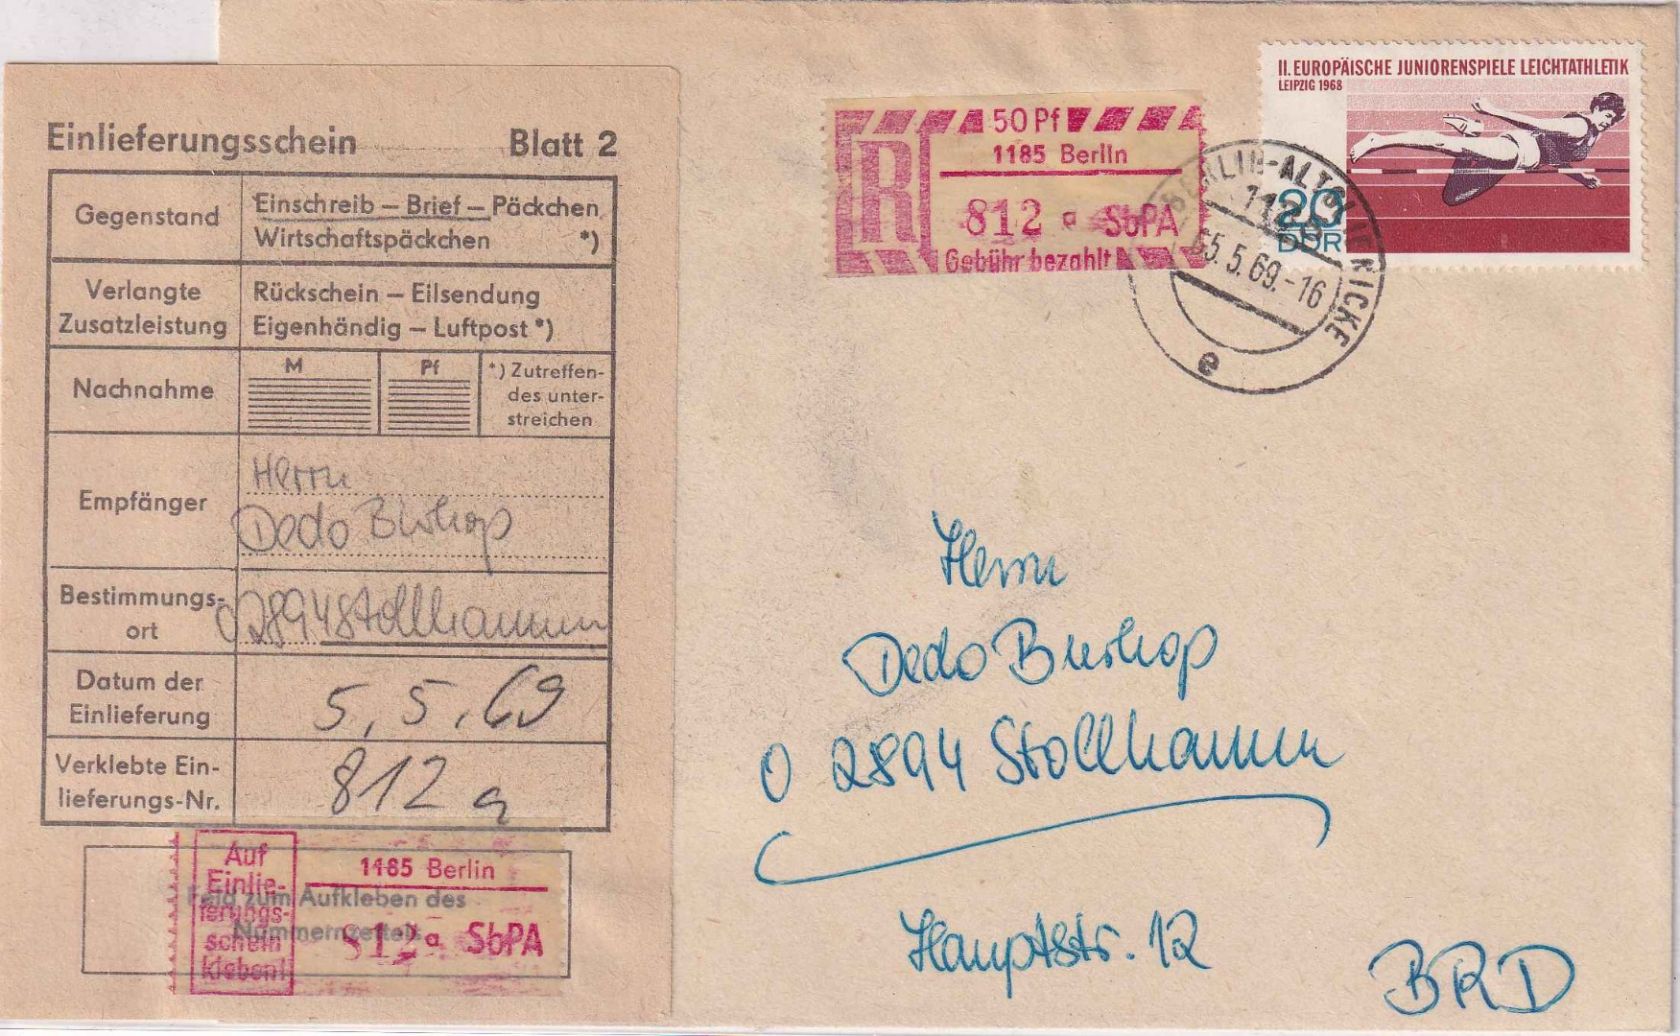 Einlieferungsschein Blatt 2
Gegenstand
Einschreib – Brief – Päckchen
Wirtschaftspäckchen *)
Verlangte
Zusatzleistung
Rückschein – Eilsendung
Eigenhändig – Luftpost *)
Nachnahme
M
Pf
*) Zutreffen-
des unter-
streichen
Empfänger
Herrn
Dedo Burhop
Bestimmungs-
ort
02894 Stollhamm
Datum der
Einlieferung
5.5.69
Verklebte Ein-
lieferungs-Nr.
812 a
Feld zum Aufkleben des
Nummernzettels
Auf
Einlie-
ferungs-
schein
kleben!
1185 Berlin
812 a SbPA
R
50 Pf
1185 Berlin
812 a SbPA
Gebühr bezahlt
II. EUROPÄISCHE JUNIORENSPIELE LEICHTATHLETIK
LEIPZIG 1968
20
DDR
BERLIN-ALTGLIENICKE
5.5.69.-16
e
Herrn
Dedo Burhop
0 2894 Stollhamm
Hauptstr. 12
BRD